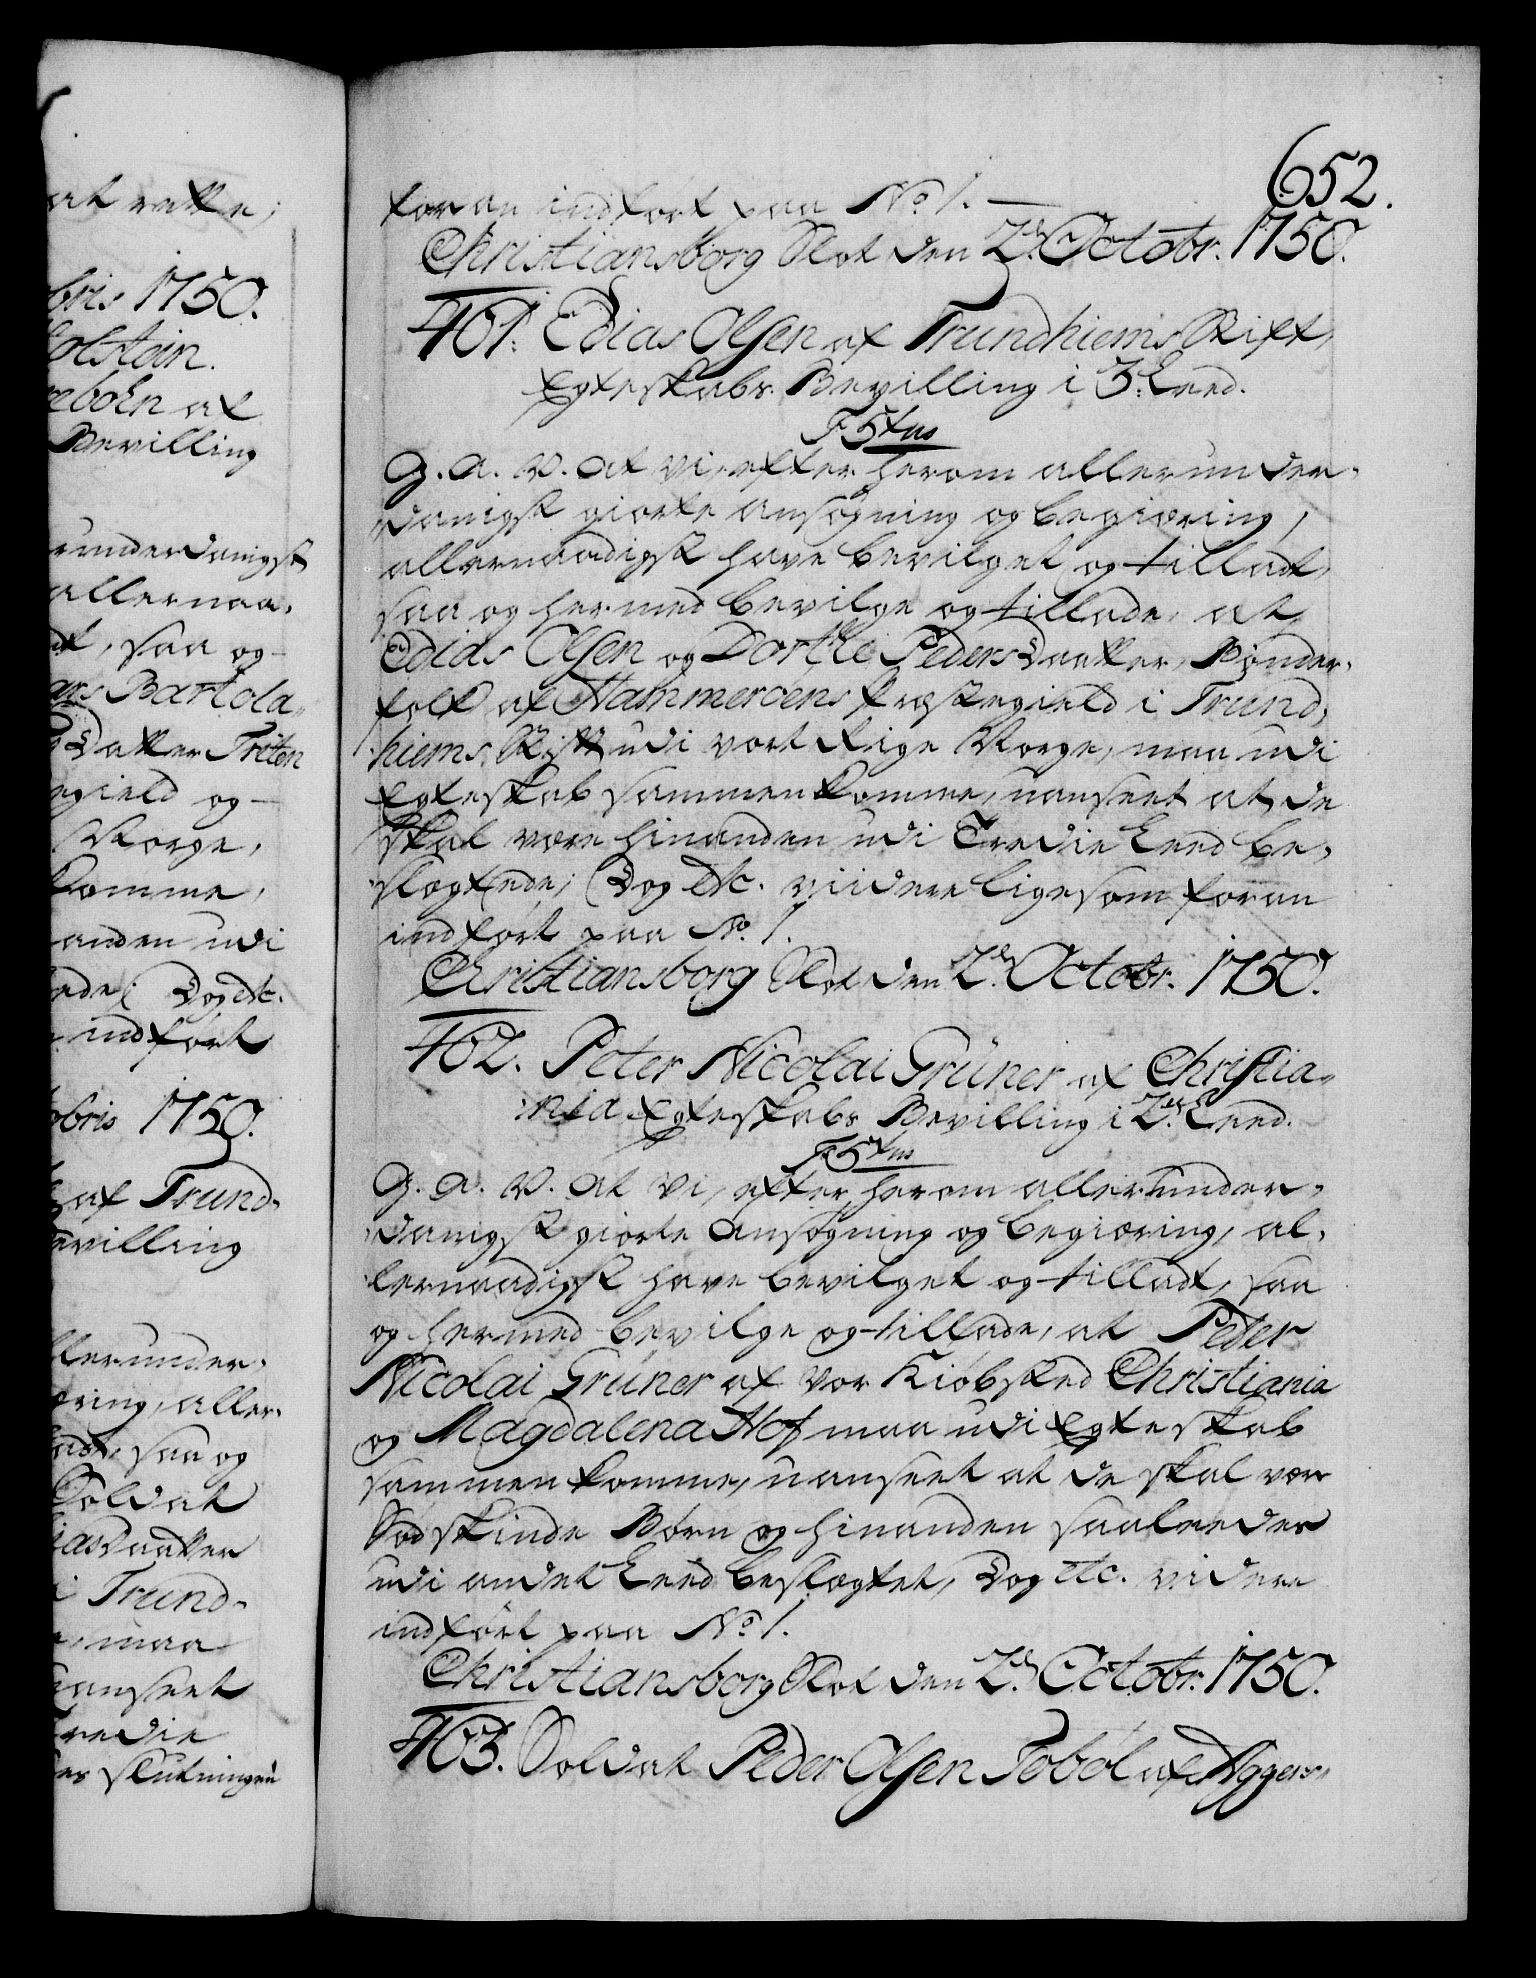 at rette;
bris 1750.
Holstein.
reboen af
Bevilling
runderdanigst
allernaa-
dt, saa og
ars Bartola-
Datter Trêten
egield og
Norge,
komme,
anden udi
ede; Dog etc.
indført
tobris 1750.
af Trund-
evilling
llerunder-
æring, aller-
adt, saa og
Soldat
iasdaatter
i Trund-
, maa
uanseet
redie
es slutningen
652.
foran indført paa No. 1. —
Christiansborg Slot den 2den Octobr. 1750.
461. Edias Olsen af Trundhiems Stift,
Egteskabs Bevilling i 3. Leed.
F 5tus
G. A. V. At vi, efter herom allerunder-
danigst giorte ansøgning og begiæring,
allernaadigst have bevilget og tilladt,
saa og hermed bevilge og tillade, at
Edias Olsen og Dorthe Pedersdaatter, Bønder-
folk af Hammeröens Præstegield i Trund-
hiems Stift udi vort Rige Norge, maa udi
Egteskab sammenkomme, uanseet at de
skal være hinanden udi Tredie Leed be-
slægtede; Dog etc. viidere ligesom foran
indført paa No. 1.
Christiansborg Slot den 2den Octobr. 1750.
462. Peter Nicolai Grüner af Christia-
nia Egteskabs Bevilling i 2det Leed.
F 5tus
G. A. V. At vi, efter herom allerunder-
danigst giorte Ansøgning og begiæring, al-
lernaadigst have bevilget og tilladt, saa
og hermed bevilge og tillade, at Peder
Nicolai Grüner af vor Kiøbsted Christiania
og Magdalena Hof maa udi Egteskab
sammenkomme, uanseet at de skal være
Sødskinde Børn og hinanden saaleedes
udi andet Leed beslægtet, Dog etc. videre
indført paa No. 1.
Christiansborg Slot den 2den Octobr. 1750.
463. Soldat Peder Olsen Toböl af Aggers-